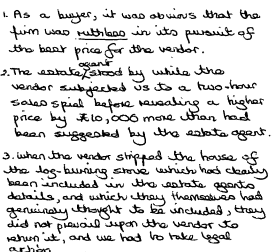 1. As a buyer, it was obvious that the
firm was ruthless in its pursuit of
the best price for the vendor.
agent
2. The estate/stood by while the
vendor subjected us to a two-hour
sales spiel before revealing a higher
price by £10,000 more than had
been suggested by the estate agent.
3. when the vendor stripped the house of
the log-burning stove which had clearly
been included in the estate agents
details, and which they themselves had
genuinely thought to be included, they
did not prevail upon the vendor to
return it, and we had to take legal
action